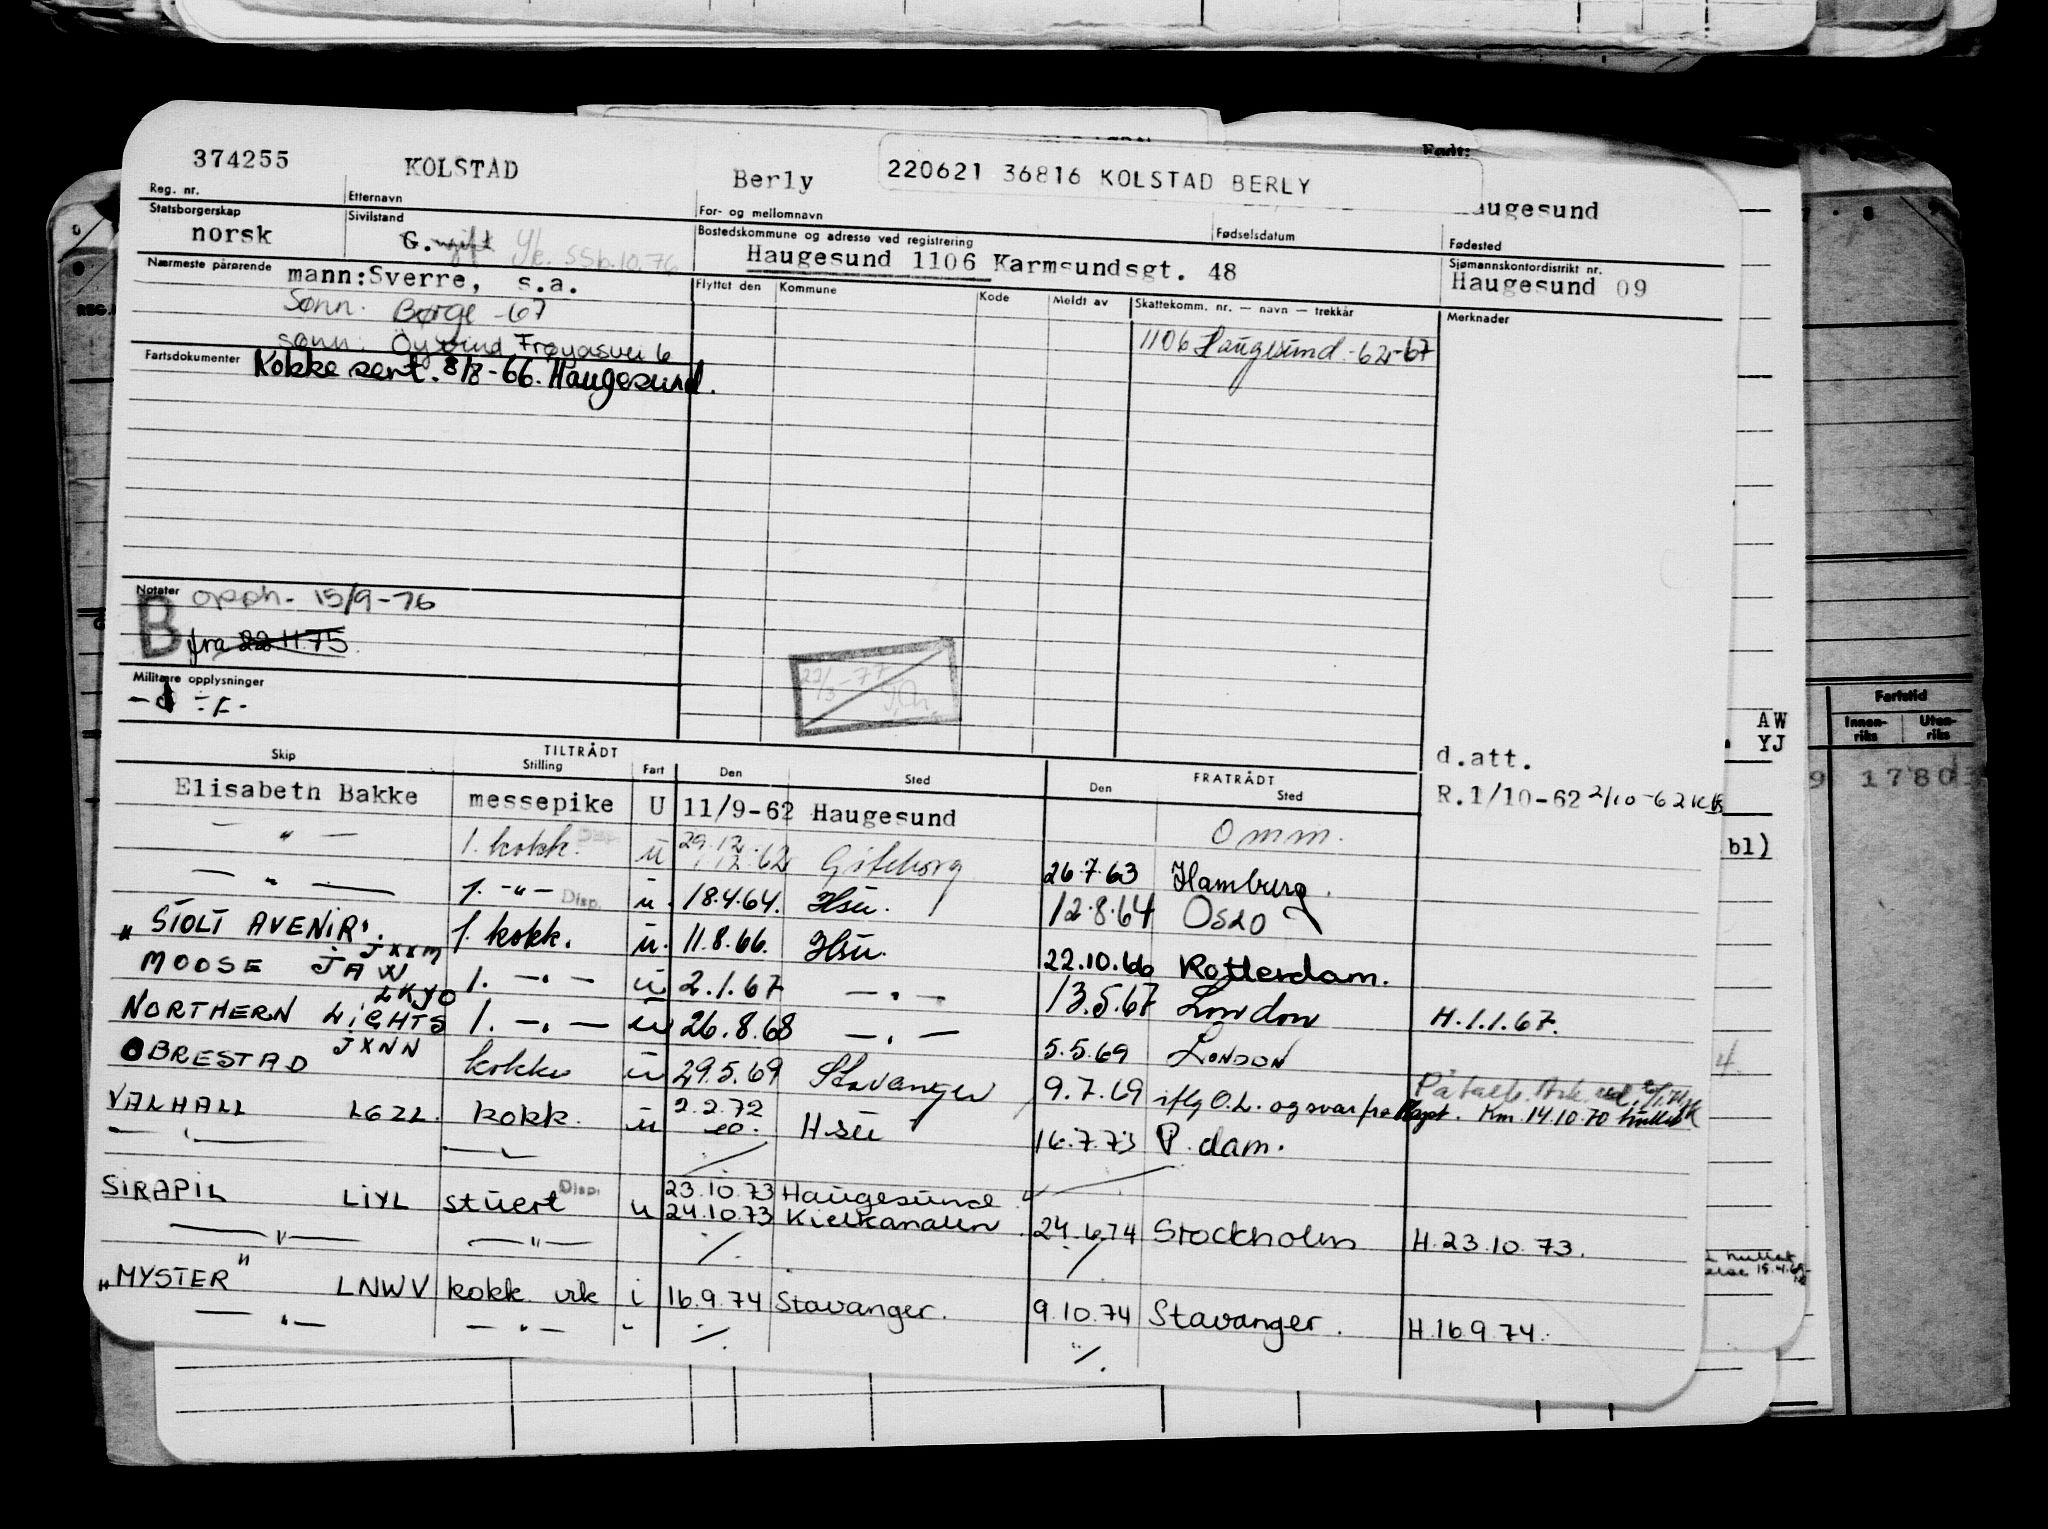 374255 KOLSTAD Berly 220621 36816 KOLSTAD BERLY augesund
Reg. nr. Etternavn For- og mellomnavn Fødselsdatum Fødested
Statsborgerskap Sivilstand Bostedskommune og adresse ved registrering Sjømannskontordistrikt nr.
norsk G. ugift Haugesund 1106 Karmsundsgt. 48 Haugesund 09
Nærmeste pårørende mann:Sverre, s.a. Flyttet den Kommune Kode Meldt av Skattekomm. nr. — navn — trekkår Merknader
Sønn: Børge -67
1106 Haugesund -62-67
sønn: Öyvind Frøyasvei 6
Fartsdokumenter Kokke sert. 8/8-66. Haugesund.
Notater opph. 15/9-76
B fra 22.11.75
22/3-77
Militære opplysninger
d.att.
Skip TILTRÅDT Stilling Fart Den Sted Den FRATRÅDT Sted
Elisabeth Bakke messepike U 11/9-62 Haugesund R.1/10-62 2/10-62
— " — 1. kokk. Disp. u 29.12 .12.62 Göteborg Omm. 26.7.63 Hamburg.
— " — 1. -"- Disp. u. 18.4.64. Hsu. 12.8.64 Oslo
"STOLT AVENIR". JXXM 1. kokk. u. 11.8.66. Hsu. 22.10.66 Rotterdam.
MOOSE JAW LKYO 1. —.— u 2.1.67 —.— 13.5.67 London H.1.1.67.
NORTHERN LIGHTS JXNN 1. —.— u 26.8.68 —.— 5.5.69 London
OBRESTAD kokk u 29.5.69 Stavanger 9.7.69 iflg O.L. og svar fra Kapt. Km. 14.10.70
VALHALL LGZL. kokk. u 2.2.72 Hsu 16.7.73 P.dam.
SIRAPIL LIYL stuert Disp. u 23.10.73 Haugesund
24.10.73 Kielkanalen 24.6.74 Stockholm H.23.10.73.
— " — — " — ./. ./.
"MYSTER" LNWV kokk vik i 16.9.74 Stavanger. 9.10.74 Stavanger. H.16.9.74.
— " — — " — " ./. ./.
Født:
AW
YJ
bl)
Fartstid
Innen-riks Uten-riks
9 1780